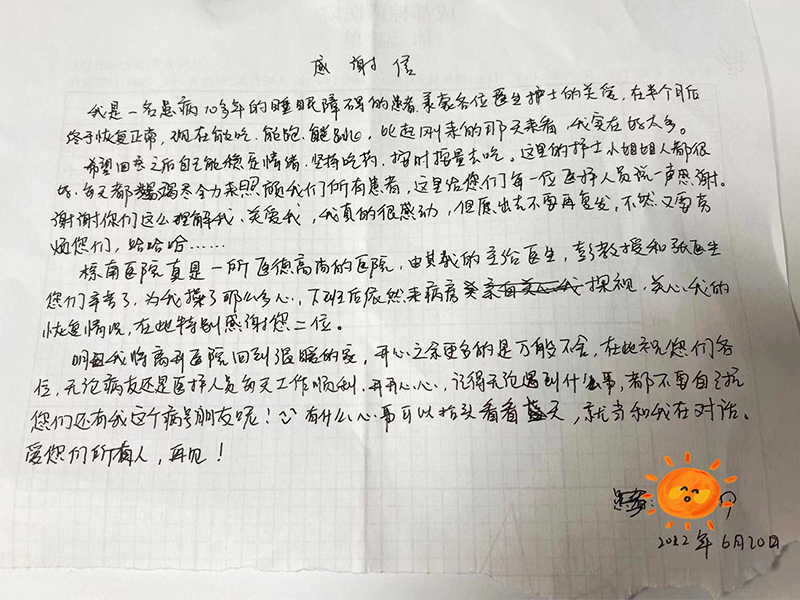 感谢信
我是一名患病10多年的睡眠障碍的患者,承蒙各位医生护士的关爱,在半个月后
终于恢复正常,现在能吃、能跑、能跳,比起刚来的那天来看,我实在好太多。
希望回去之后自己能稳定情绪,坚持吃药,按时按量去吃。这里的护士小姐姐人都很
好,每天都竭尽全力来照顾我们所有患者,这里给您们每一位医护人员说一声恩谢。
谢谢你们这么理解我、关爱我,我真的很感动,但愿出去不要再复发,不然又要麻
烦您们,哈哈哈……
棕南医院真是一所医德高尚的医院,尤其我的主治医生,彭教授和张医生
您们辛苦了,为我操了那么多心,下班后依然来病房探视,关心我的
恢复情况,在此特别感谢您二位。
明日我将离开医院回到温暖的家,开心之余更多的是万般不舍,在此祝您们各
位,无论病友还是医护人员每天工作顺利、开开心心,记得无论遇到什么事,都不要自扰
您们还有我这个病号朋友呢!有什么心事可以抬头看看蓝天,就当和我在对话。
爱您们所有人,再见!
患者:
2022年6月20日